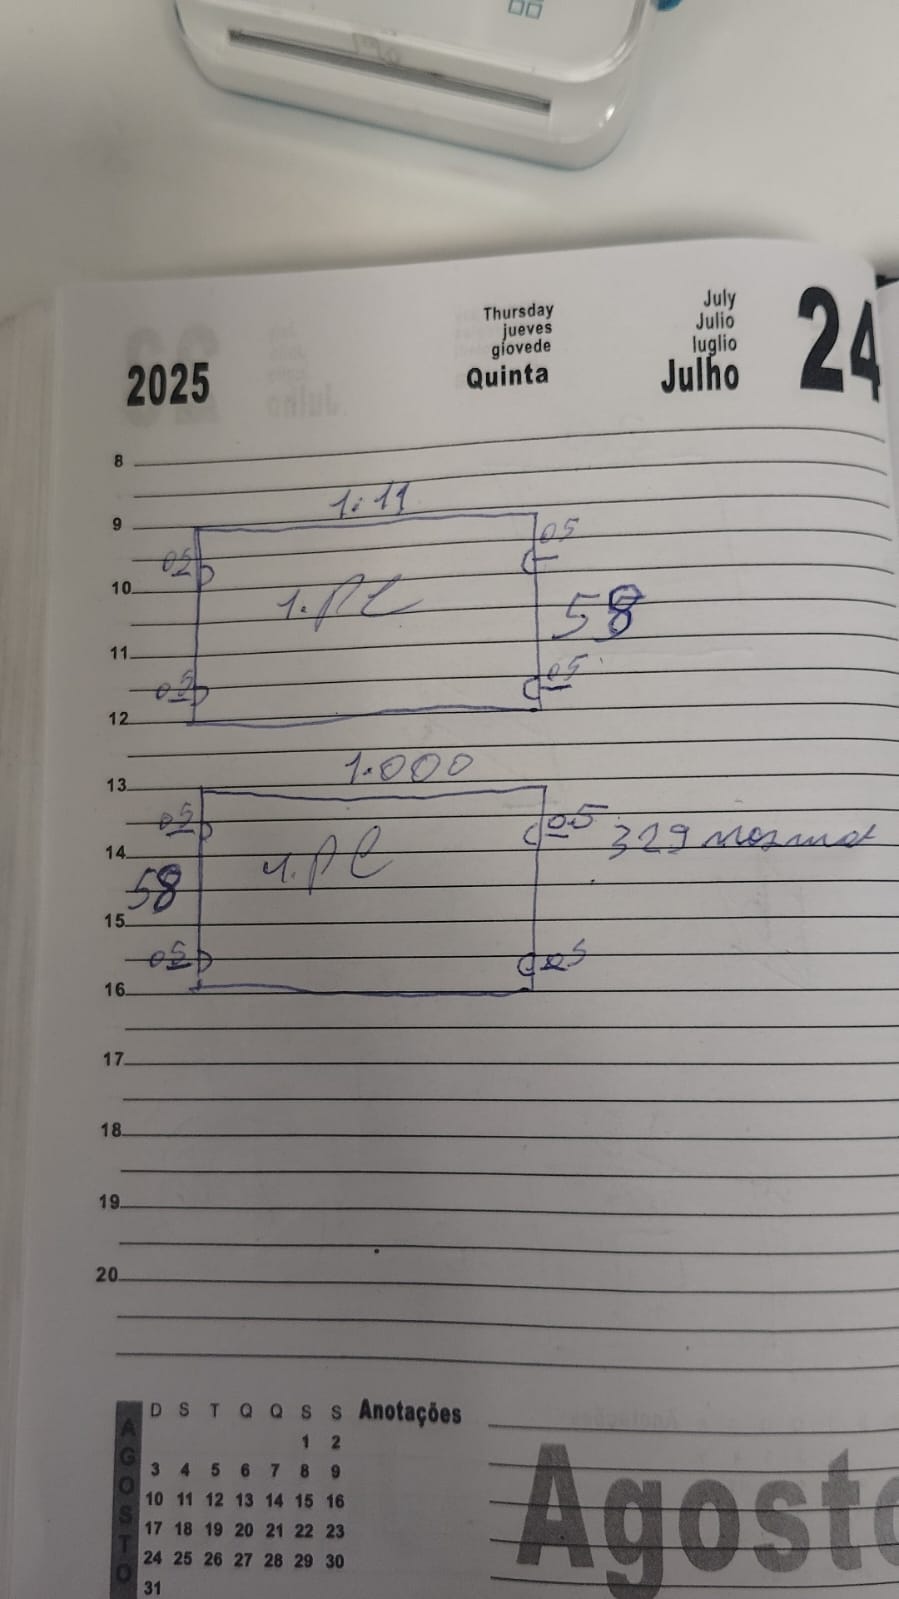 Thursday
jueves
giovede
Quinta
July
Julio
luglio
Julho
24
2025
8
1.11
9
05
05
10
1.PC
58
11
05
05
12
1.000
13
05
05
14
1.PC
329
58
15
05
05
16
17
18
19
20
AGOSTO
D S T Q Q S S
1 2
3 4 5 6 7 8 9
10 11 12 13 14 15 16
17 18 19 20 21 22 23
24 25 26 27 28 29 30
31
Anotações
Agosto